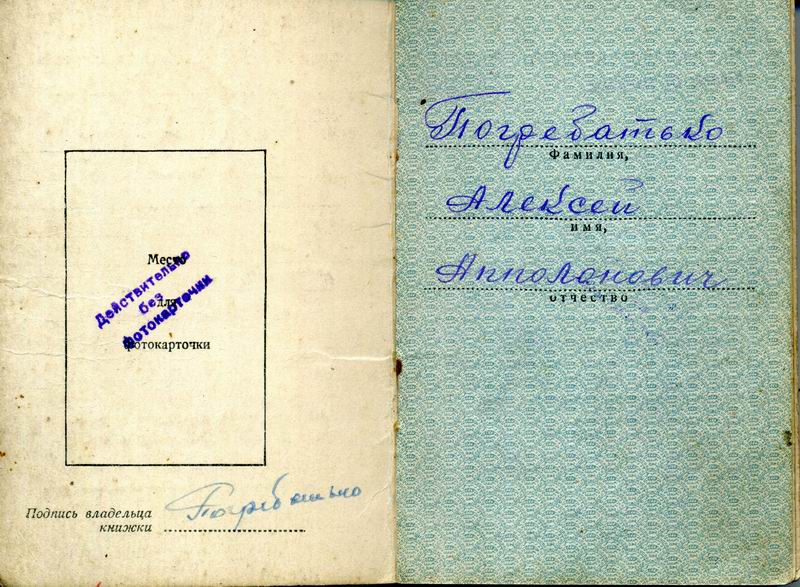 Место
для
фотокарточки
Действительно
без
фотокарточки
Подпись владельца
книжки
Погребатько
Погребатько
Фамилия,
Алексей
имя,
Апполанович
отчество